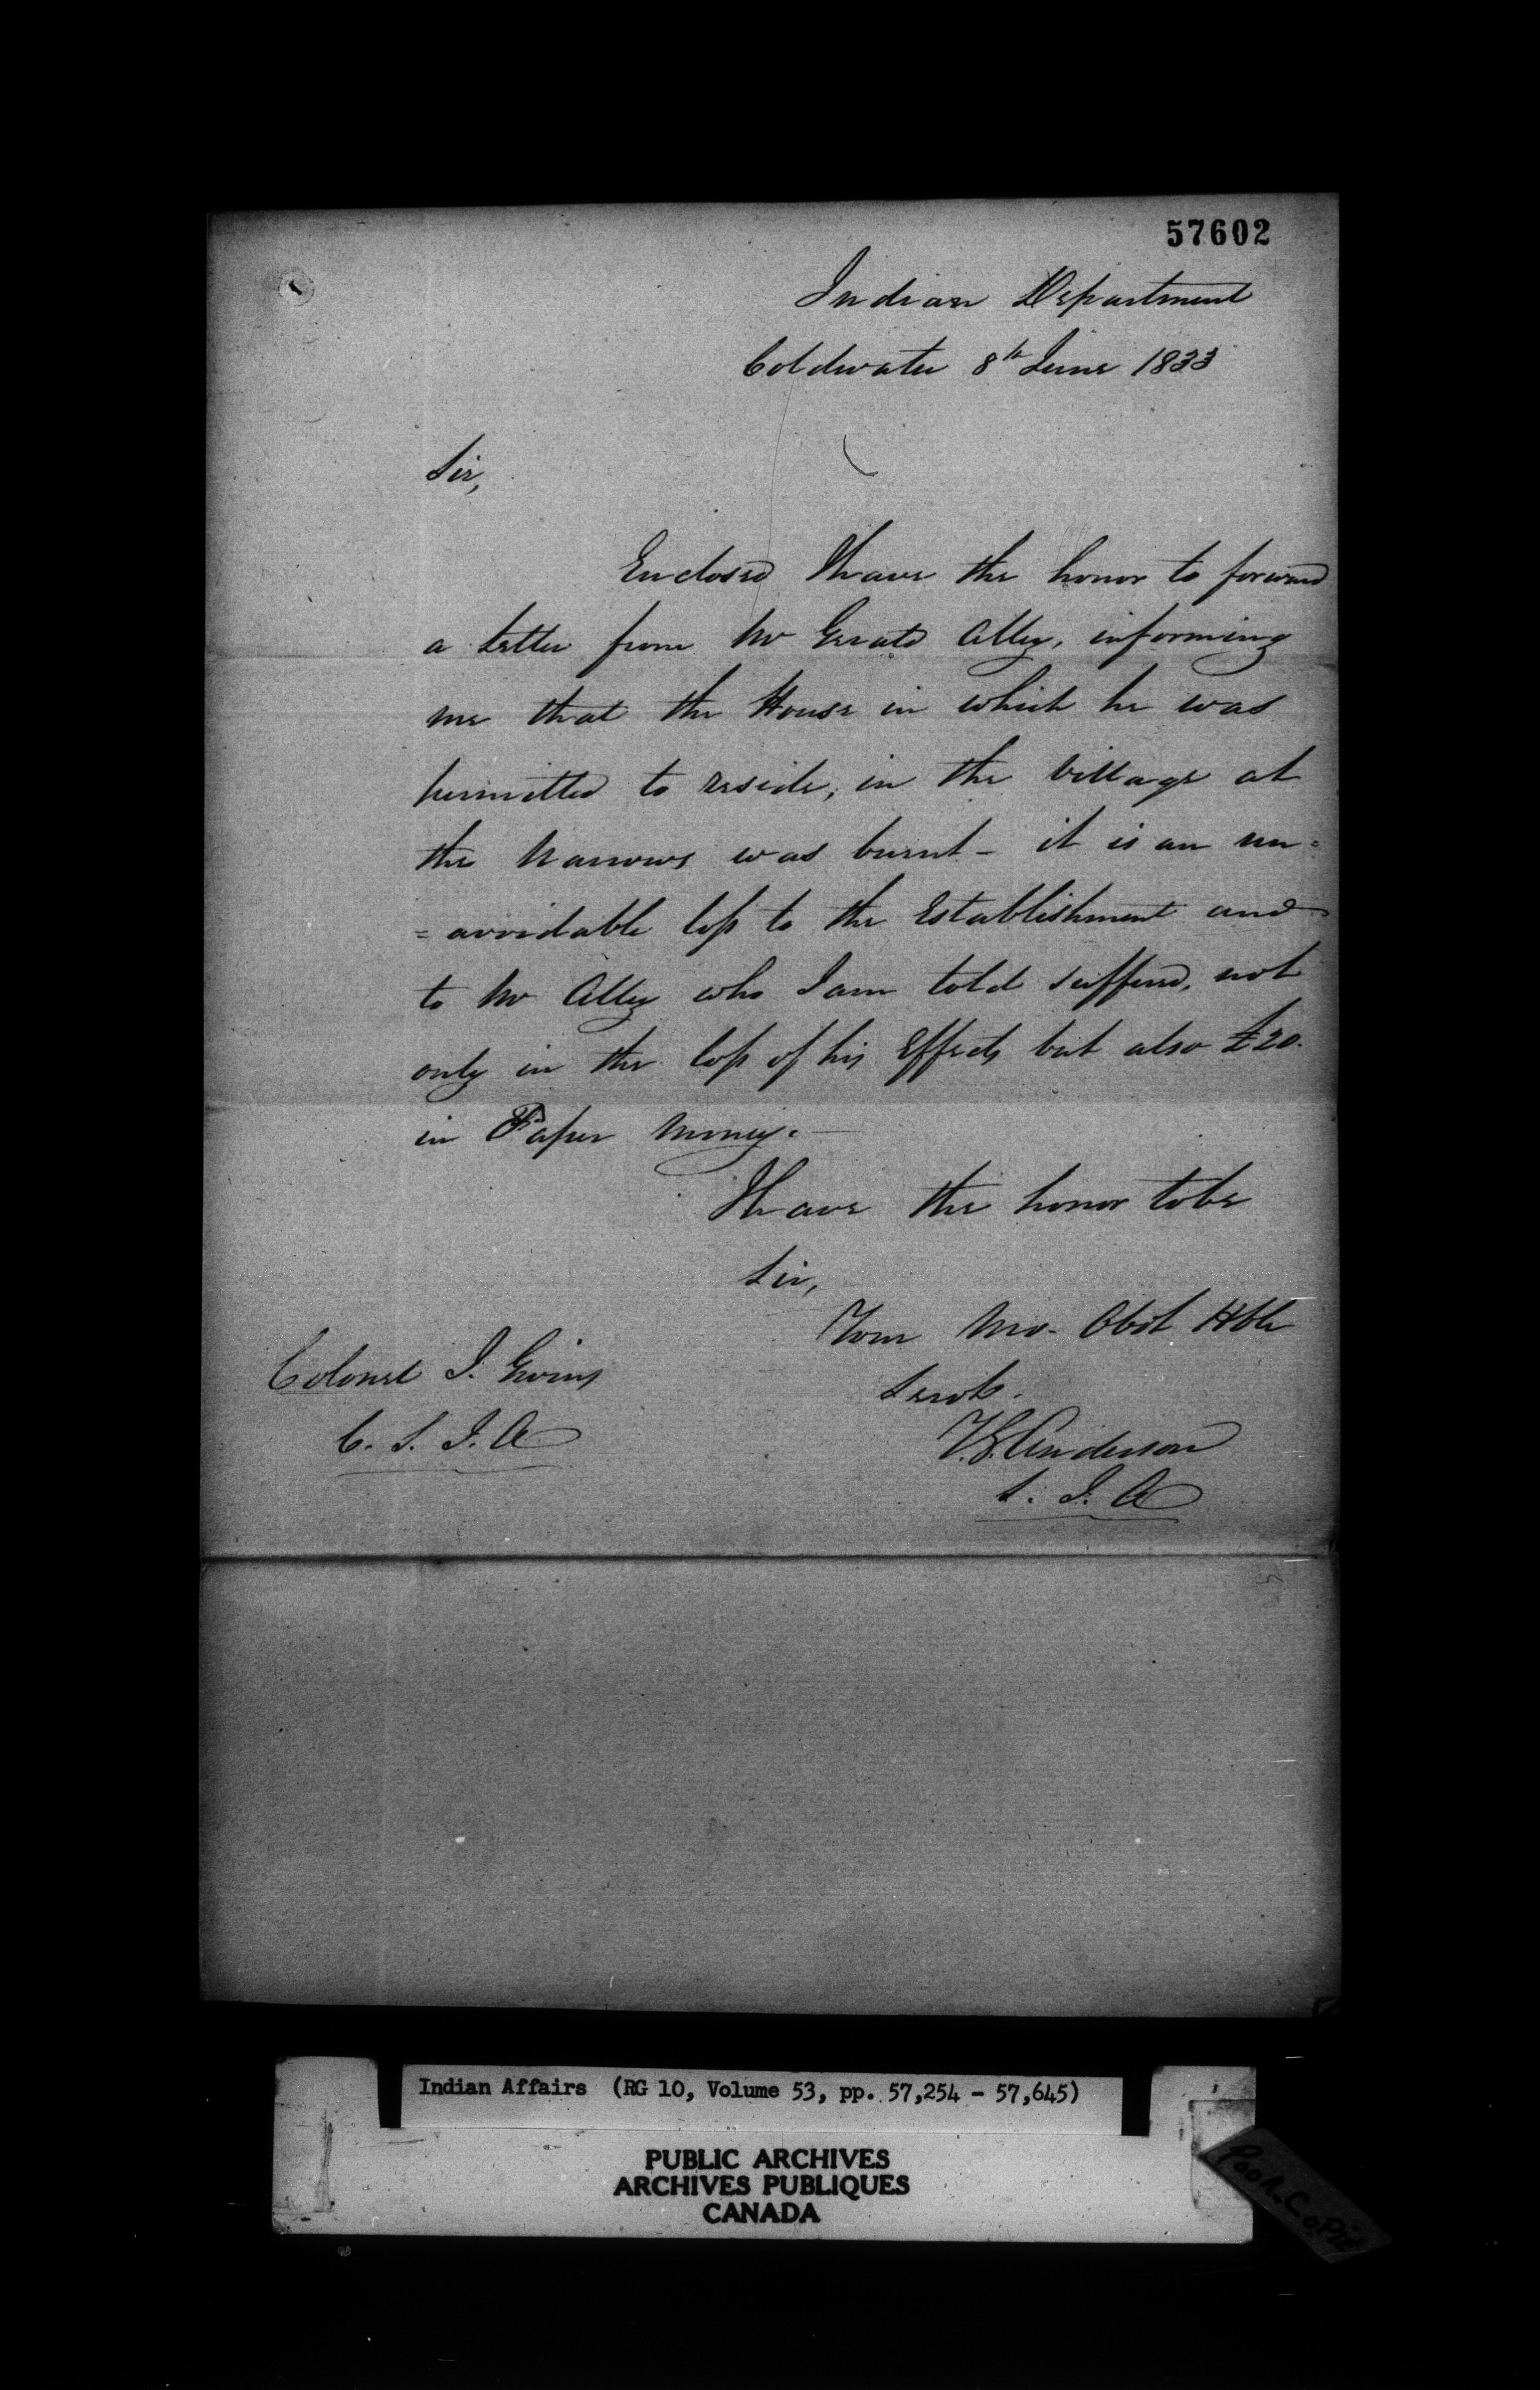 57602
Indian Department
Coldwater 8th June 1833
Sir,
Enclosed I have the honor to forward
a Letter from Mr Gerald Alley, informing
me that the House in which he was
permitted to reside, in the Village at
the Narrows was burnt - it is an un=
=avoidable loss to the Establishment and
to Mr Alley who I am told suffered, not
only in the loss of his Effects but also £20.
in Paper Money. —
I have the honor to be
Sir,
Your Mo. Obdt Hble
Servt.
T.G. Anderson
S. I. A
Colonel J. Givins
C. S. I. A
Indian Affairs (RG 10, Volume 53, pp. 57,254 - 57,645)
PUBLIC ARCHIVES
ARCHIVES PUBLIQUES
CANADA
Poor Copie